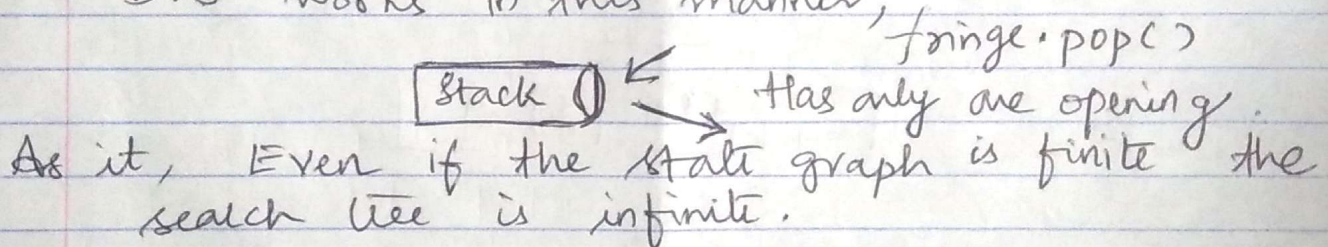 works in this manner,
fringe.pop()
Stack
Has only one opening.
As it, Even if the state graph is finite the
search tree is infinite.